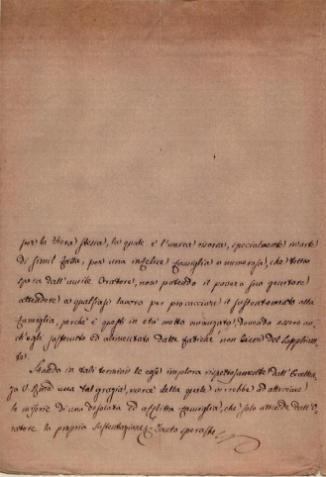 per la Chiesa stessa, la quale è l'unica risorsa, specialmente in arte
di simil fatta, per una infelice Famiglia e numerosa, che tutto
spera dall'umile Oratore, non potendo il povero suo genitore
attendere a qualsiasi lavoro per procacciare il sostentamento alla
Famiglia, perchè è questi in età molto avanzata, dovendo essere an-
ch'egli sostenuto ed alimentato dalle fatiche
Stando in tali termini le cose implora rispettosamente dall'Eccellen-
za V. una tal grazia, mercè della quale verrebbe ad alleviare
le miserie di una desolata ed afflitta Famiglia, che solo attende dall'O-
ratore la propria sostentazione;